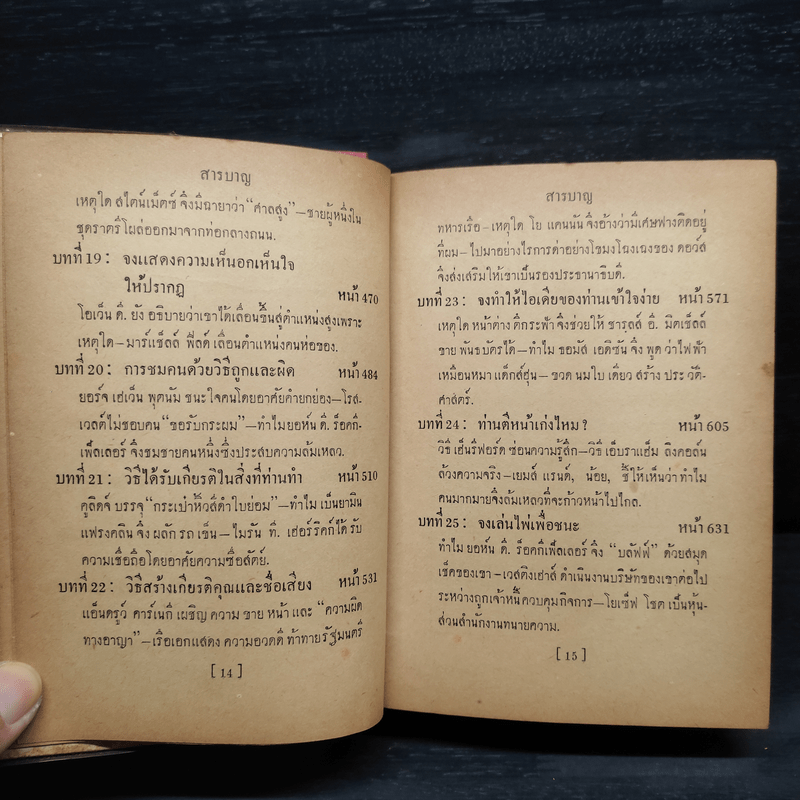 สารบาญ
เหตุใด สไตน์เม็ตซ์ จึงมีฉายาว่า “ศาลสูง”—ชายผู้หนึ่งใน
ชุดราตรีโผล่ออกมาจากท่อกลางถนน.
บทที่ 19 : จงแสดงความเห็นอกเห็นใจ
ให้ปรากฏ หน้า 470
โอเว็น ดี. ยัง อธิบายว่าเขาได้เลื่อนขึ้นสู่ตำแหน่งสูงเพราะ
เหตุใด—มาร์แช็ลล์ ฟีลด์ เลื่อนตำแหน่งคนห่อของ.
บทที่ 20 : การชมคนด้วยวิธีถูกและผิด หน้า 484
ยอร์จ เฮเว็น พุตนัม ชนะใจคนโดยอาศัยคำยกย่อง—โรส-
เวลต์ไม่ชอบคน “ขอรับกระผม”—ทำไมยอห์น ดี. ร็อคกี-
เฟ็ลเลอร์ จึงชมชายคนหนึ่งซึ่งประสบความล้มเหลว.
บทที่ 21 : วิธีได้รับเกียรติในสิ่งที่ท่านทำ หน้า 510
คูลิดจ์ บรรจุ “กระเป๋าหิ้วสีดำใบย่อม”—ทำไม เบ็นยามิน
แฟรงคลิน จึง ผลัก รถ เข็น—ไมรัน ที. เฮ่อร์ริคก์ได้ รับ
ความเชื่อถือโดยอาศัยความซื่อสัตย์.
บทที่ 22 : วิธีสร้างเกียรติคุณและชื่อเสียง หน้า 531
แอ็นดรูว์ คาร์เนกี เผชิญ ความ ขาย หน้า และ “ความผิด
ทางอาญา”—เรือเอกแสดง ความอวดดี ท้าทาย รัฐมนตรี
[ 14 ]
สารบาญ
ทหารเรือ—เหตุใด โย แคนนัน จึงอ้างว่ามีเศษฟางติดอยู่
ที่ผม—ไปมาอย่างไรการด่าอย่างโขมงโฉงเฉงของ ดอว์ส์
จึงส่งเสริมให้เขาเป็นรองประธานาธิบดี.
บทที่ 23 : จงทำให้ไอเดียของท่านเข้าใจง่าย หน้า 571
เหตุใด หน้าต่าง ติ๊กระฟ้า จึงช่วยให้ ชารลส์ อี. มิตเช็ลล์
ขาย พันธบัตรได้—ทำไม ธอมัส เอดิซัน จึง พูด ว่าไฟฟ้า
เหมือนหมา แด็กส์ฮุ่น—ขวด นมใบ เดียว สร้าง ประ วัติ-
ศาสตร์.
บทที่ 24 : ท่านตีหน้าเก่งไหม ? หน้า 605
วิธี เฮ็นรี่ฟอร์ด ซ่อนความรู้สึก—วิธี เอ็บราแฮ็ม ลิงคอล์น
ล้วงความจริง—เยมส์ แรนด์, น้อย, ชี้ ให้เห็นว่า ทำไม
คนมากมายจึงล้มเหลวที่จะก้าวหน้าไปไกล.
บทที่ 25 : จงเล่นไพ่เพื่อชนะ หน้า 631
ทำไม ยอห์น ดี. ร็อคกี้เฟ็ลเลอร์ จึง “บลัฟฟ์” ด้วยสมุด
เช็คของเขา—เวสติงเฮ้าส์ ดำเนินงานบริษัทของเขาต่อไป
ระหว่างถูกเจ้าหนี้ควบคุมกิจการ—โยเซ็ฟ โชต เป็นหุ้น-
ส่วนสำนักงานทนายความ.
[ 15 ]